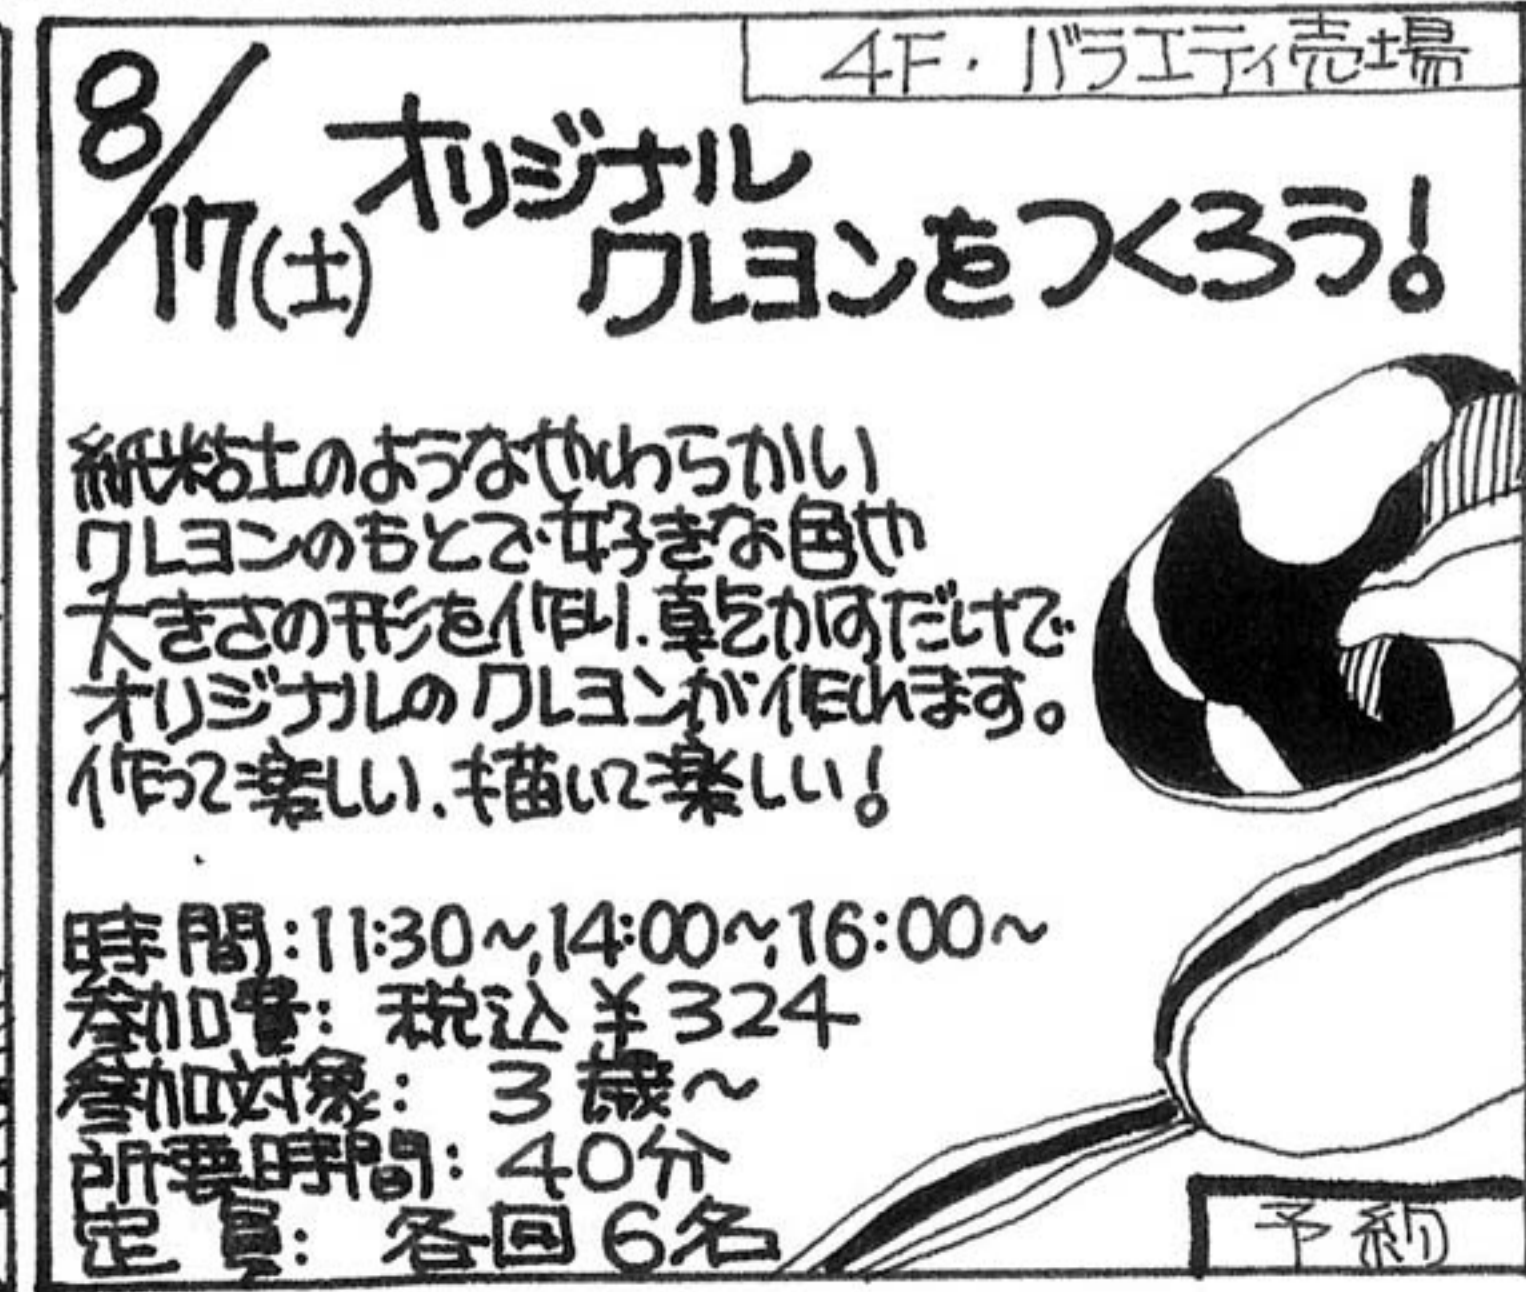 4F・バラエティ売場
8/17(土)
オリジナル
クレヨンをつくろう!
紙粘土のようなやわらかい
クレヨンのもとで好きな色や
大きさの形を作り、乾かすだけで
オリジナルのクレヨンが作れます。
作って楽しい、描いて楽しい!
時間:11:30~,14:00~,16:00~
参加費: 税込¥324
参加対象: 3歳~
所要時間: 40分
定員: 各回6名
予約